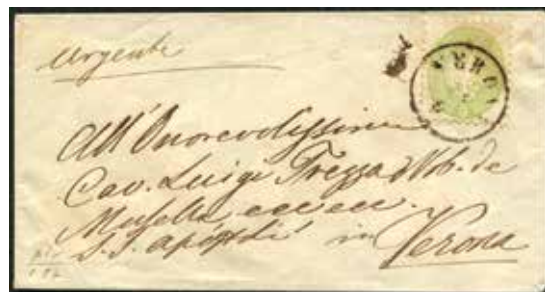 Urgente
VERONA
All'Onorevolissimo
Cav. Luigi Trezza d Nob. de
Musella ecc ecc.
S.S. Apostoli in Verona